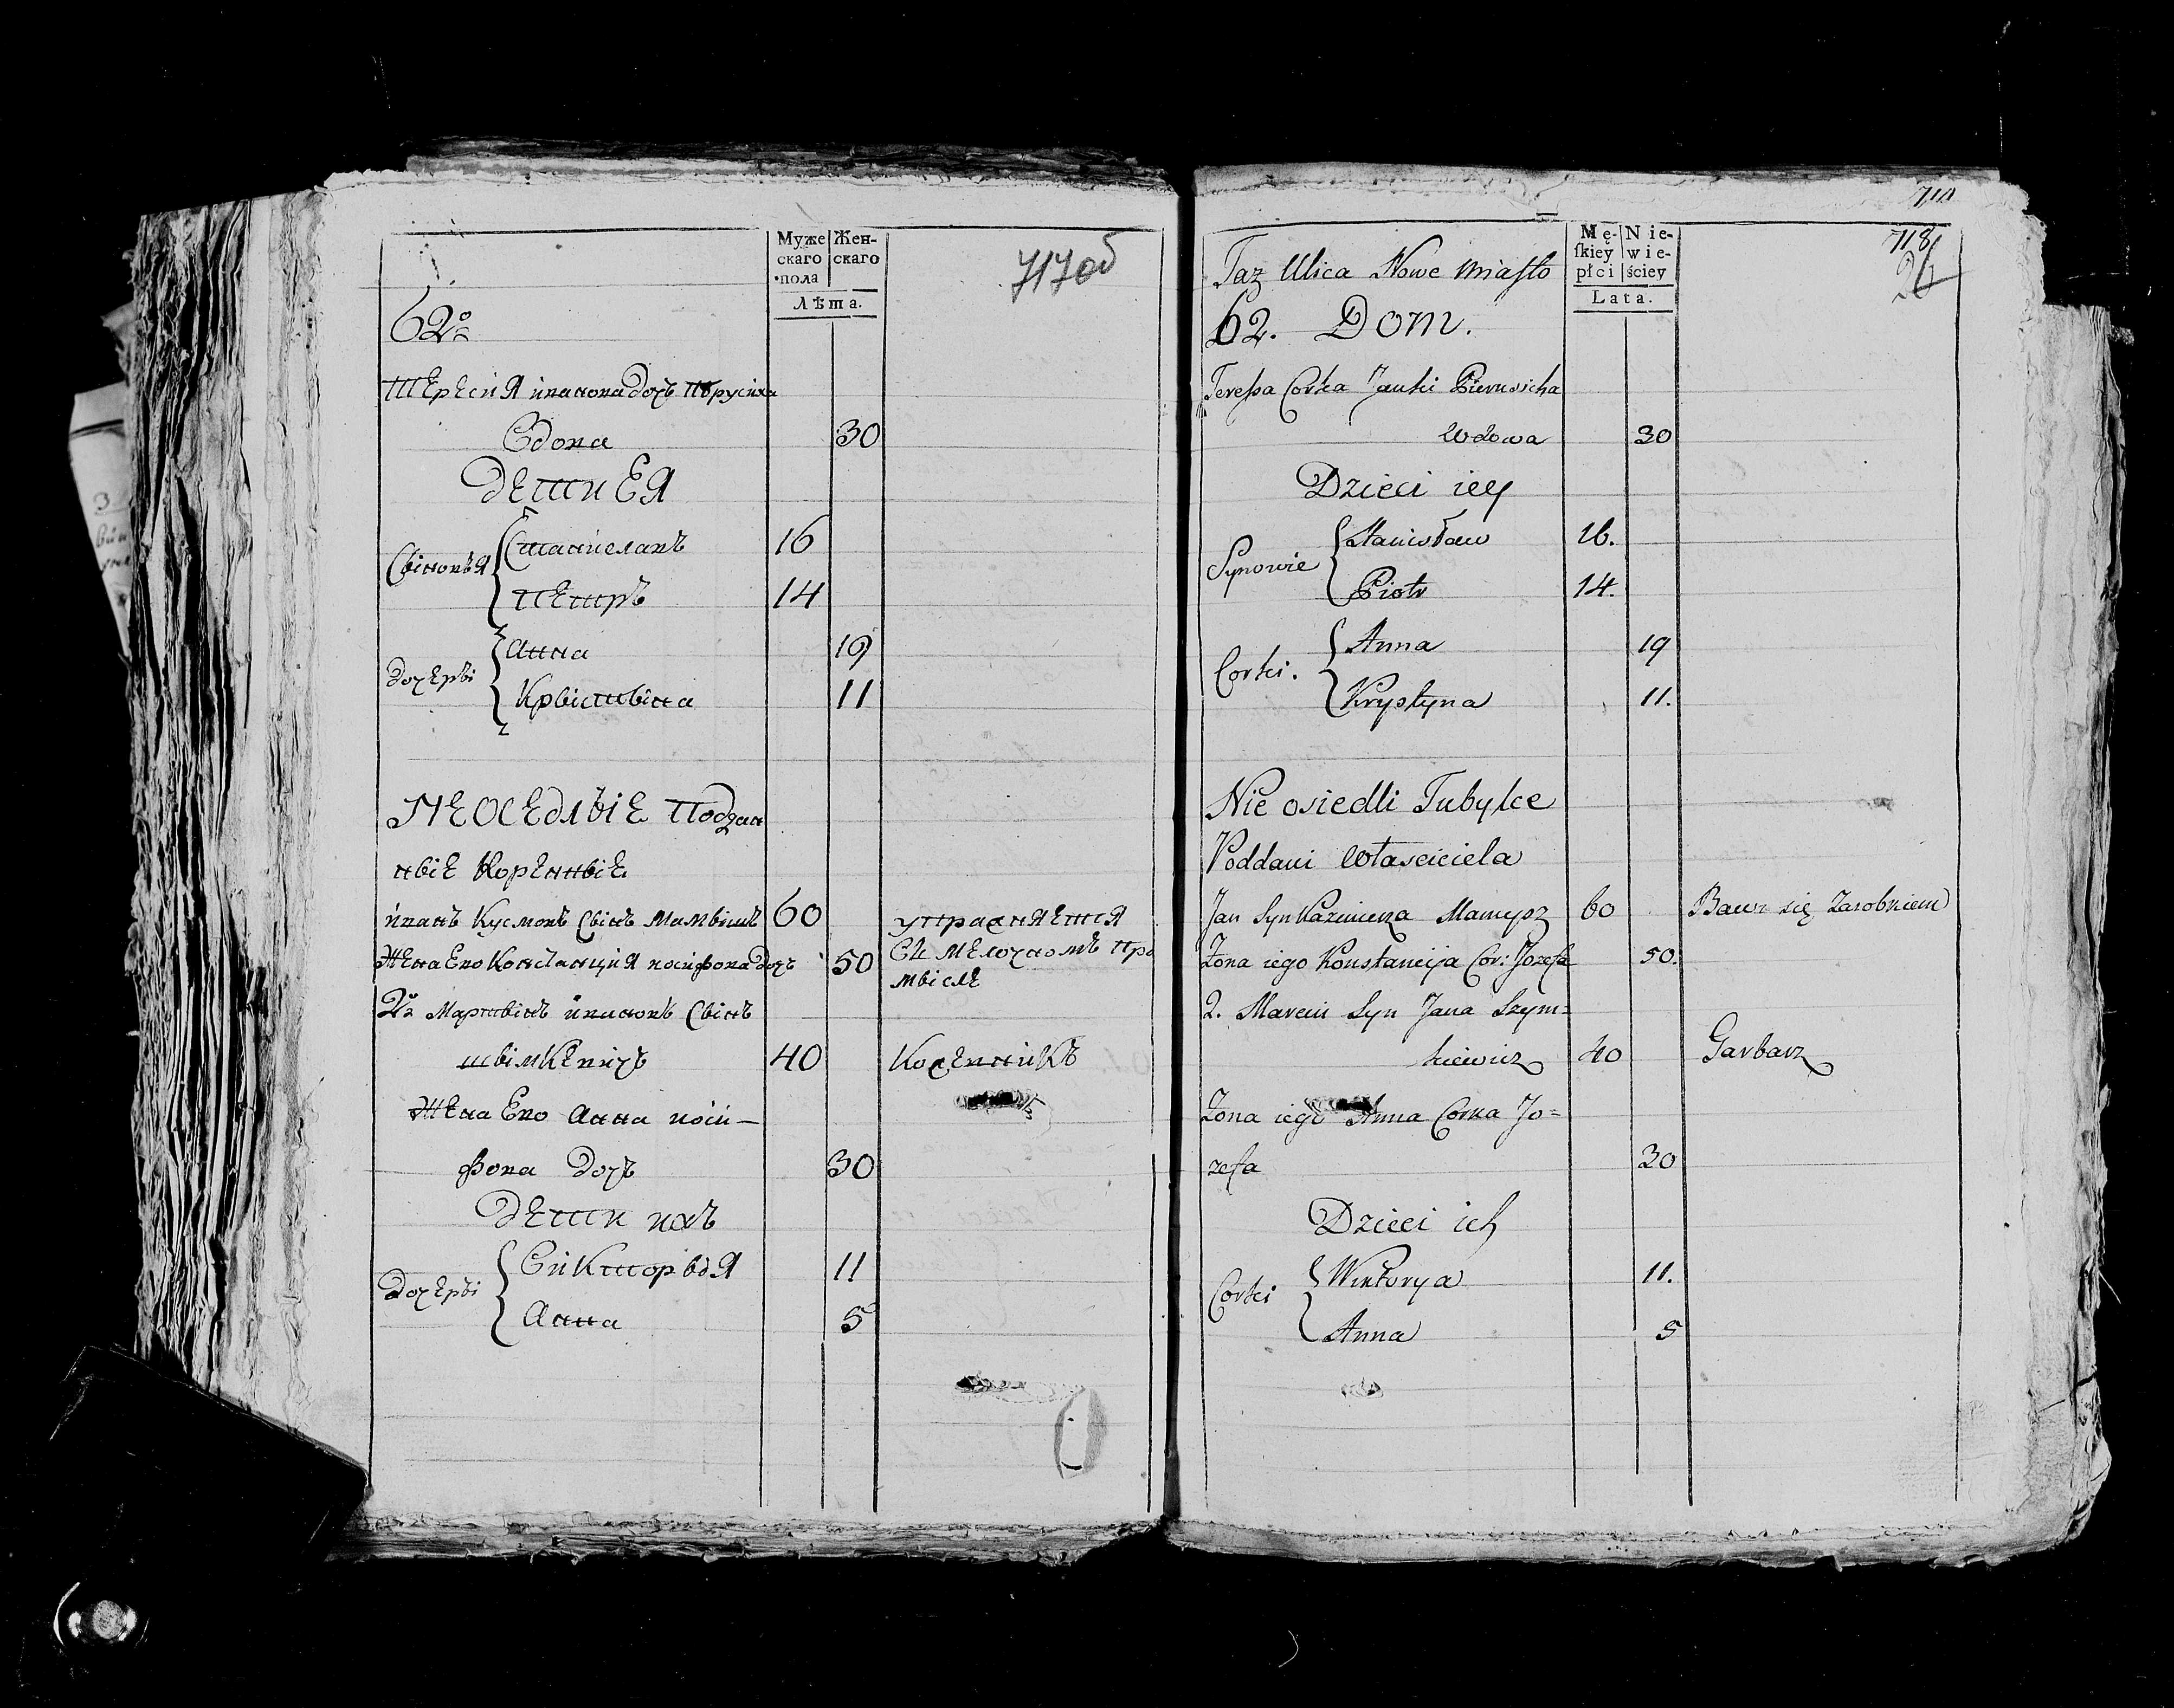 717об
Муже
скаго
пола
Жен-
скаго
Лѣта.
62е
Тересия иванова дочь
вдова 30
дети Ея
Сыновья
Станиславъ 16
Петръ 14
дочеры
Анна 19
Крыстына 11
Неоседлые Поддан
ные Коренные
иванъ Кусмовъ Сынъ Мамышъ 60 упражняется
Жена Ево Констанция иосифова дочь 50 въ мелочномъ про
мысле
2е Мартынъ ивановъ Сынъ
шымкевичь 40 Кожевникъ
Жена Ево Анна иоси-
фова дочь 30
Дети ихъ
Дочеры
Викторыя 11
Анна 5
718
26
Męſkiey płci
Niewieściey
Lata.
Taz Ulica Nowe Miasto
62. Dom.
Teressa Corka Janki
wdowa 30
Dzieci iey
Synowie
Stanisław 16.
Piotr 14.
Corki.
Anna 19
Krystyna 11.
Nie osiedli Tubylce
Poddani własciciela
Jan Syn Kazimierza Mamysz 60 Bawi się Zarobkiem
Zona iego Konstancija Cor: Jozefa 50.
2. Marcin Syn Jana Szym=
kiewicz 40 Garbarz
Zona iego Anna Corka Jo=
zefa 30
Dzieci ich
Corki
Wiktorya 11.
Anna 5